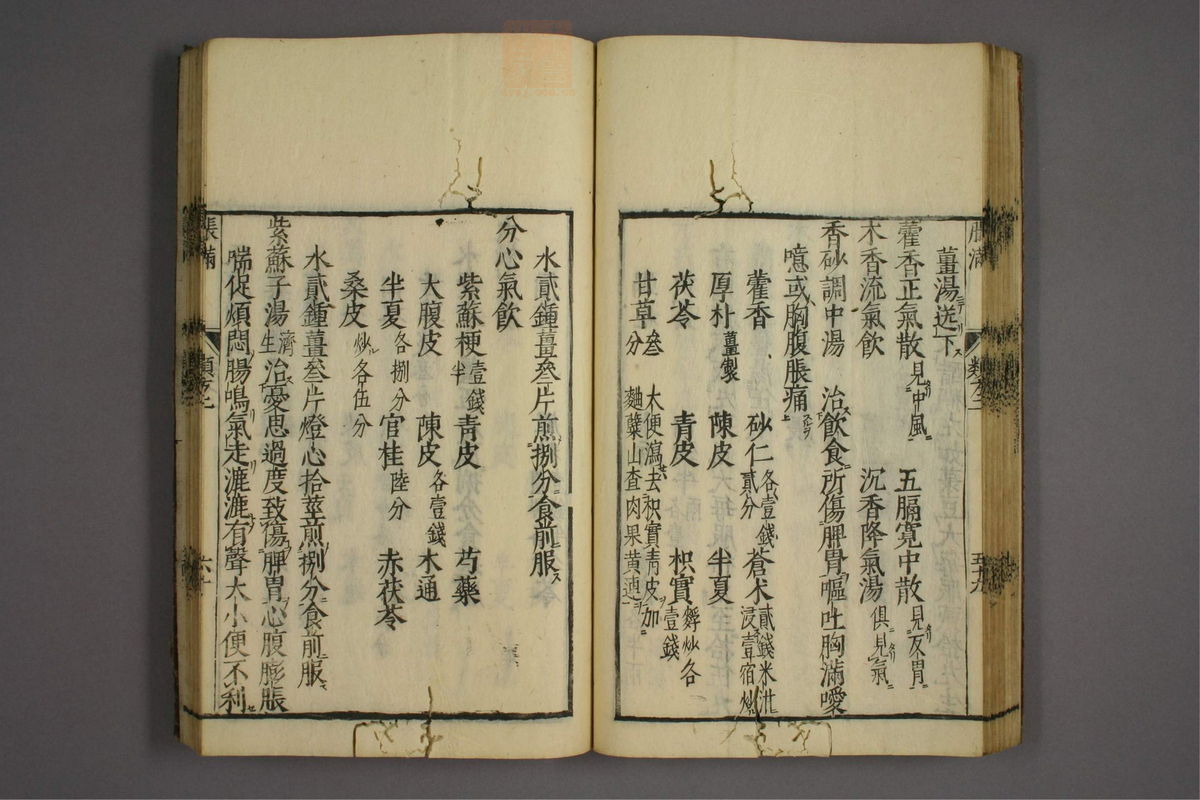 薑湯送下
藿香正氣散見中風 五膈寬中散見反胃
木香流氣飲 沉香降氣湯俱見氣
香砂調中湯 治飲食所傷脾胃嘔吐胸滿噯
噫或胸腹脹痛
藿香 砂仁各壹錢貳分 蒼朮貳錢米泔浸壹宿炒
厚朴薑製 陳皮 半夏
茯苓 青皮 枳實麩炒各壹錢
甘草叄分 大便瀉去枳實青皮加麯蘗山查肉果黄連
脹滿 類之二 五十九
水貳鍾薑叄片煎捌分食前服
分心氣飲
紫蘇梗壹錢半 青皮 芍藥
大腹皮 陳皮各壹錢 木通
半夏各捌分 官桂陸分 赤茯苓
桑皮炒各伍分
水貳鍾薑叄片燈心拾莖煎捌分食前服
紫蘇子湯濟生 治憂思過度致傷脾胃心腹膨脹
喘促煩悶腸鳴氣走漉漉有聲大小便不利
脹滿 類之二 六十